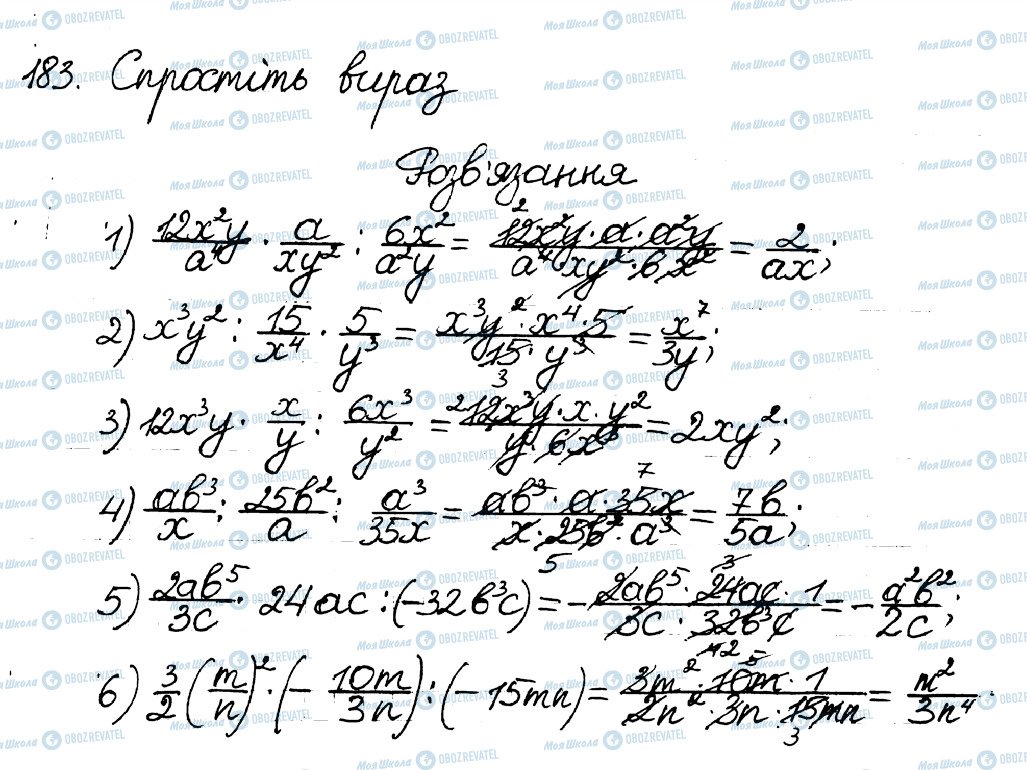 183. Спростіть вираз
Розв'язання
1) 12x²y/a⁴ · a/xy² : 6x²/a²y = 12x²y·a·a²y/a⁴·xy²·6x² = 2/ax;
2) x³y² : 15/x⁴ · 5/y³ = x³y²·x⁴·5/15·y³ = x⁷/3y;
3) 12x³y · x/y : 6x³/y² = 12x³y·x·y²/y·6x³ = 2xy²;
4) ab³/x : 25b²/a : a³/35x = ab³·a·35x/x·25b²·a³ = 7b/5a;
5) 2ab⁵/3c · 24ac : (-32b³c) = - 2ab⁵·24ac·1/3c·32b³c = - a²b²/2c;
6) 3/2 (m/n)² · (- 10m/3n) : (- 15mn) = 3m²·10m·1/2n²·3n·15mn = m²/3n⁴